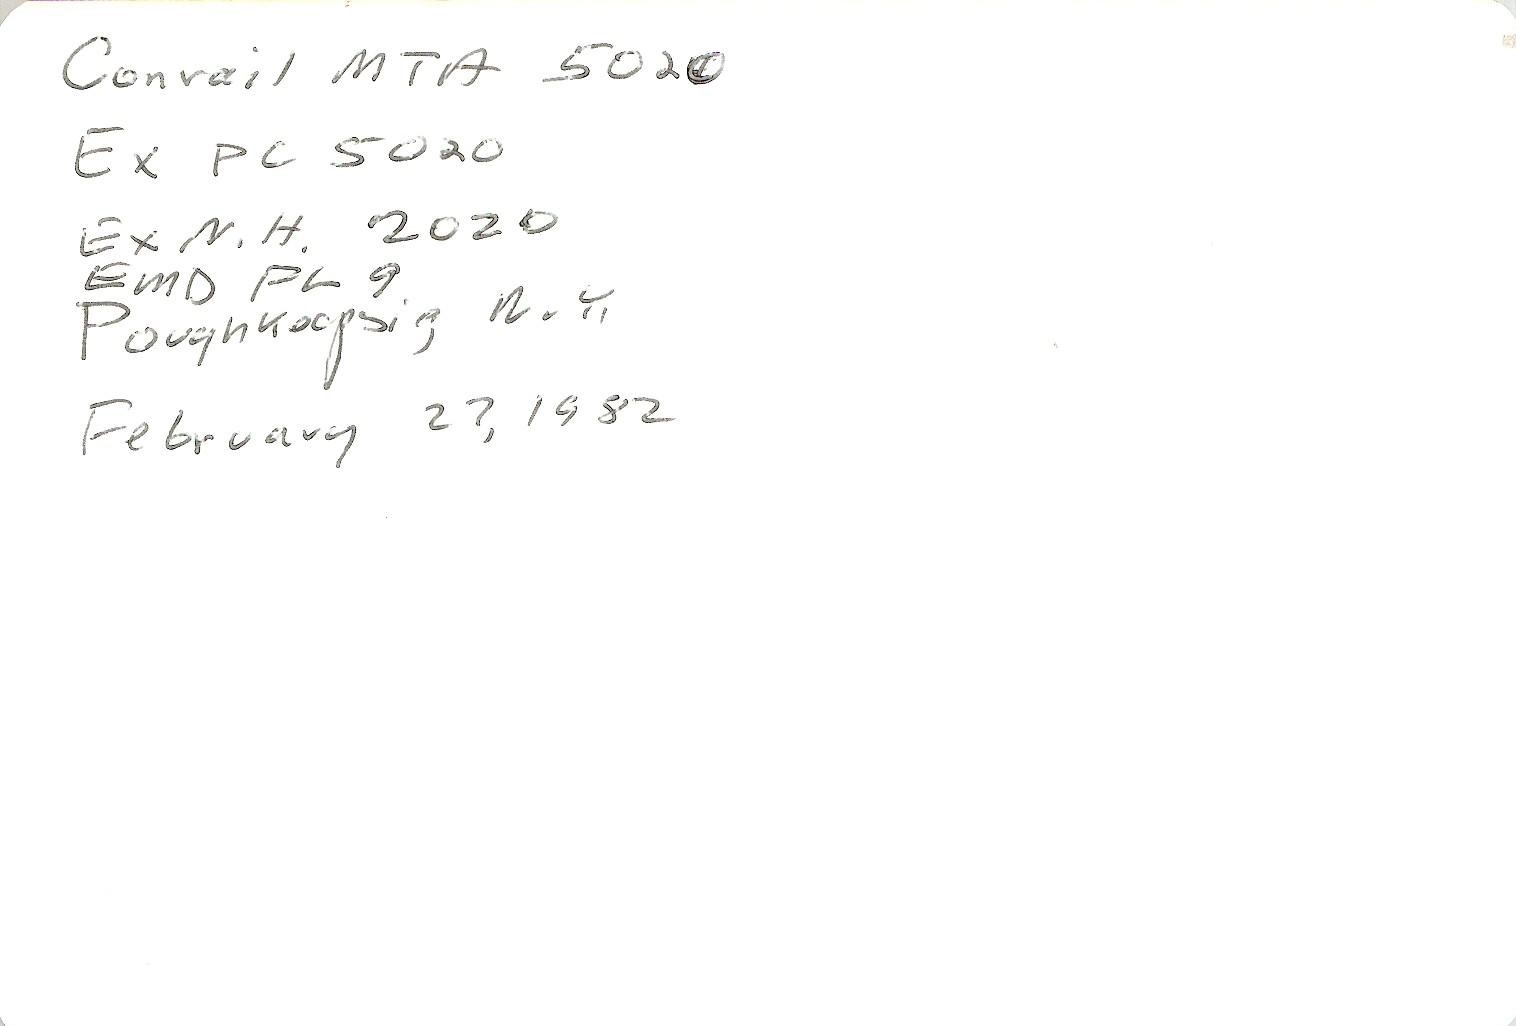 Conrail MTA 5020
Ex PC 5020
Ex N.H. 2020
EMD FL 9
Poughkeepsie, N.Y.
February 27, 1982